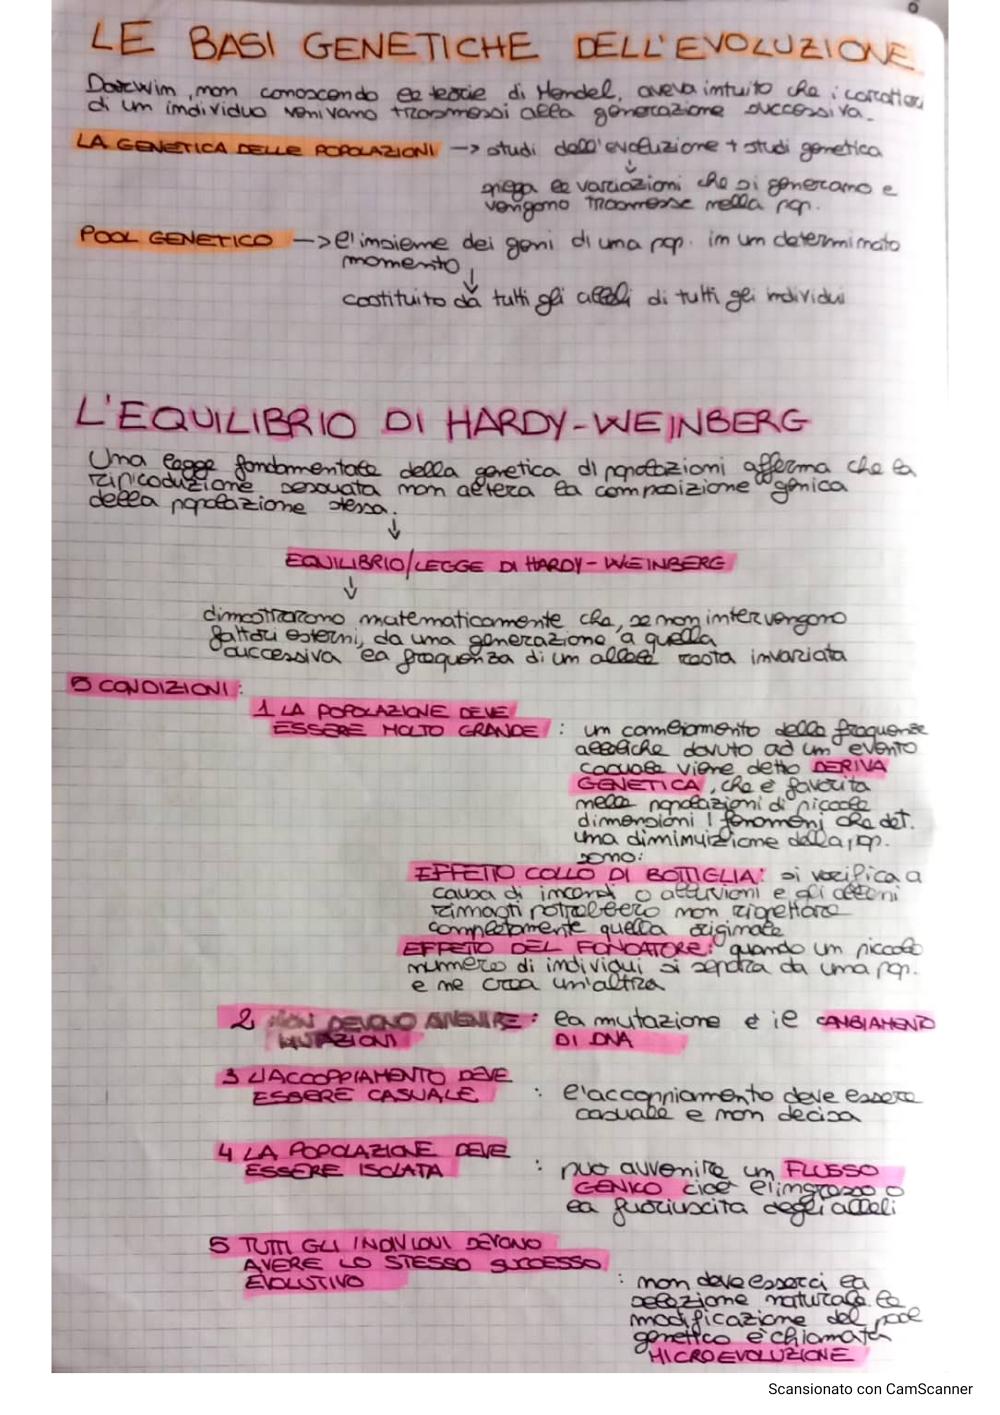 LE BASI GENETICHE DELL'EVOLUZIONE
Darwim, non conoscendo le teorie di Mendel, aveva intuito che i caratteri
di un individuo venivano trasmessi alla generazione successiva.
LA GENETICA DELLE POPOLAZIONI -> studi dell'evoluzione + studi genetica
↓
spiega le variazioni che si generano e
vengono trasmesse nella pop.
POOL GENETICO -> l'insieme dei geni di una pop. in un determinato
momento
↓
costituito da tutti gli alleli di tutti gli individui
L'EQUILIBRIO DI HARDY-WEINBERG
Una legge fondamentale della genetica di popolazioni afferma che la
riproduzione sessuata non altera la composizione genica
della popolazione stessa.
↓
EQUILIBRIO/LEGGE DI HARDY-WEINBERG
↓
dimostrarono matematicamente che, se non intervengono
fattori esterni, da una generazione a quella
successiva la frequenza di un allele resta invariata
5 CONDIZIONI:
1 LA POPOLAZIONE DEVE
ESSERE MOLTO GRANDE : un cambiamento della frequenze
alleliche dovuto ad un evento
casuale viene detto DERIVA
GENETICA, che è favorita
nelle popolazioni di piccole
dimensioni I fenomeni che det.
una diminuizione della pop.
sono:
EFFETTO COLLO DI BOTTIGLIA: si verifica a
causa di incendi o alluvioni e gli alleni
rimasti potrebbero non rispettare
completamente quella originale
EFFETTO DEL FONDATORE: quando un piccolo
numero di individui si separa da una pop.
e ne crea un'altra
2 NON DEVONO AVVENIRE : la mutazione è il CAMBIAMENTO
MUTAZIONI DI DNA
3 L'ACCOPPIAMENTO DEVE
ESSERE CASUALE : l'accoppiamento deve essere
casuale e non deciso
4 LA POPOLAZIONE DEVE
ESSERE ISOLATA : può avvenire un FLUSSO
GENICO cioè l'ingresso o
la fuoriuscita degli alleli
5 TUTTI GLI INDIVIDUI DEVONO
AVERE LO STESSO SUCCESSO
EVOLUTIVO : non deve esserci la
selezione naturale. la
modificazione del pool
genetico è chiamata
MICROEVOLUZIONE
Scansionato con CamScanner